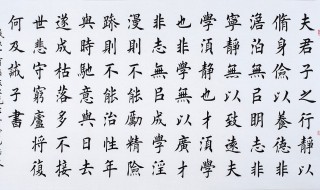 夫君子之行靜以
脩身儉以養德非
澹泊無以明志非
寧靜無以致遠夫
學須靜也才須學
也非學無以廣才
非志無以成學淫
漫則不能勵精險
躁則不能治性年
與時馳意與日去
遂成枯落多不接
世悲守窮廬將復
何及誡子書